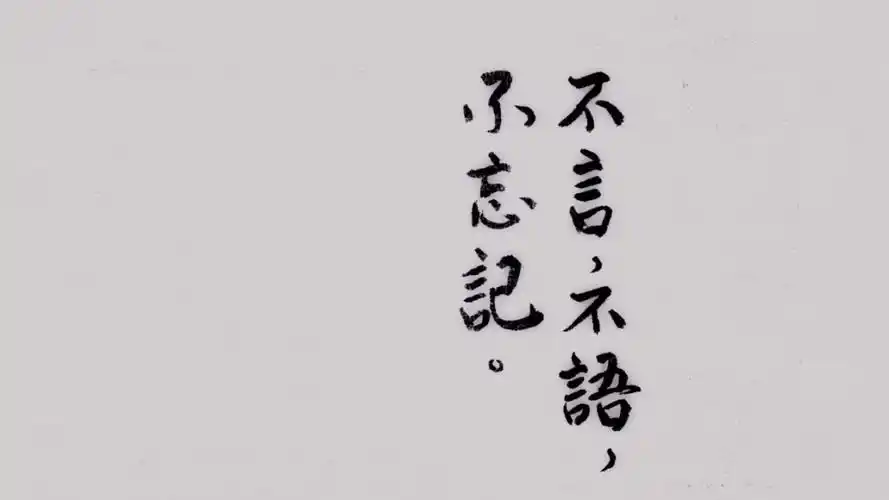 不言，不語，
不忘記。